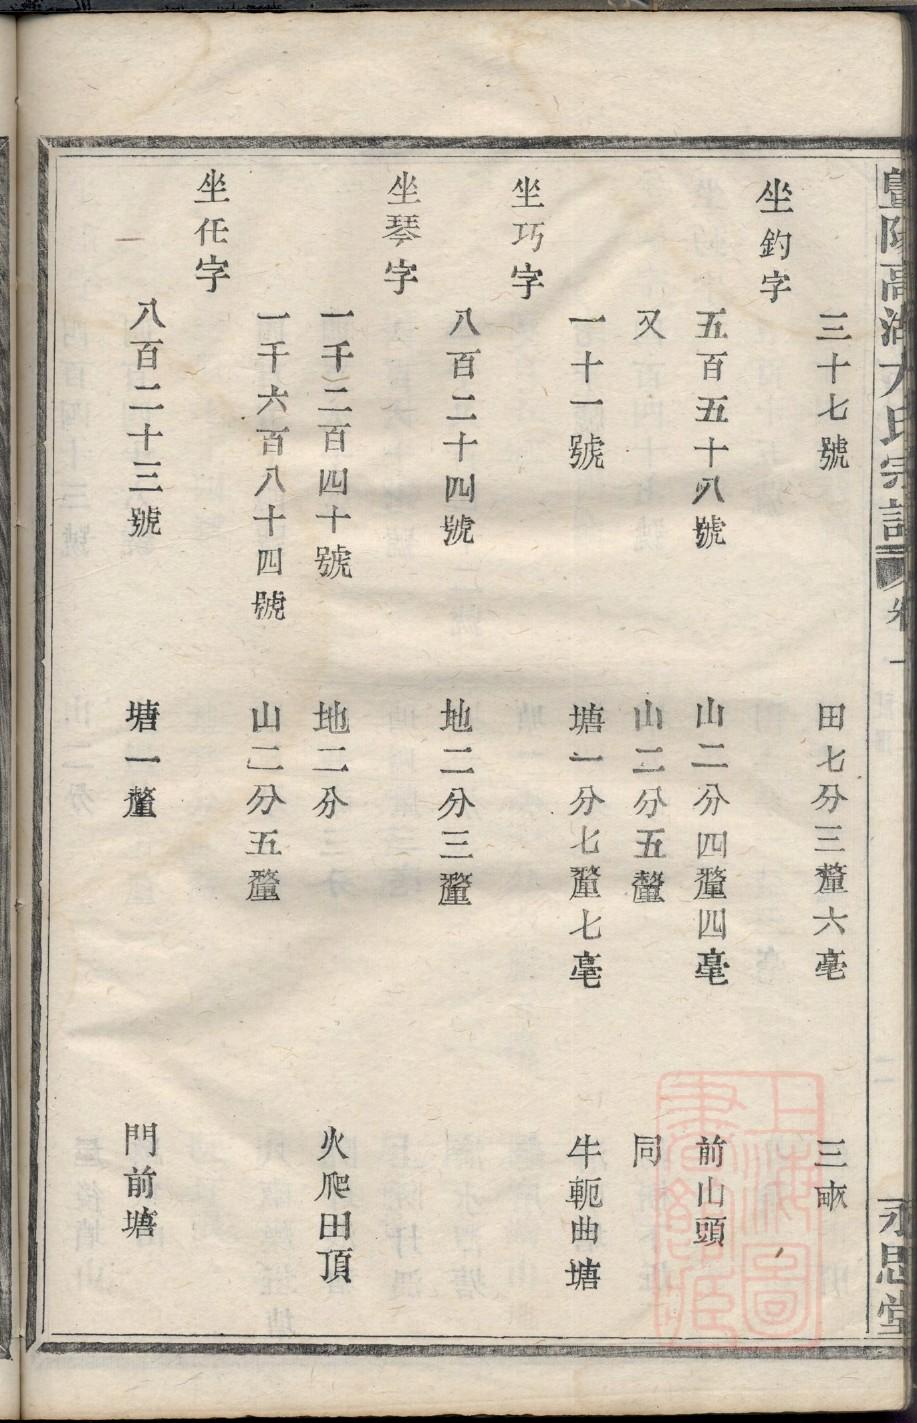 三十七號　田七分三釐六毫　三畝
坐釣字
五百五十八號　山二分四釐四毫　前山頭
又　山二分五釐　同
一十一號　塘一分七釐七毫　牛軛曲塘
坐巧字
八百二十四號　地二分三釐
坐琴字
一千二百四十號　地二分　火爬田頂
一千六百八十四號　山二分五釐
坐任字
八百二十三號　塘一釐　門前塘
永思堂